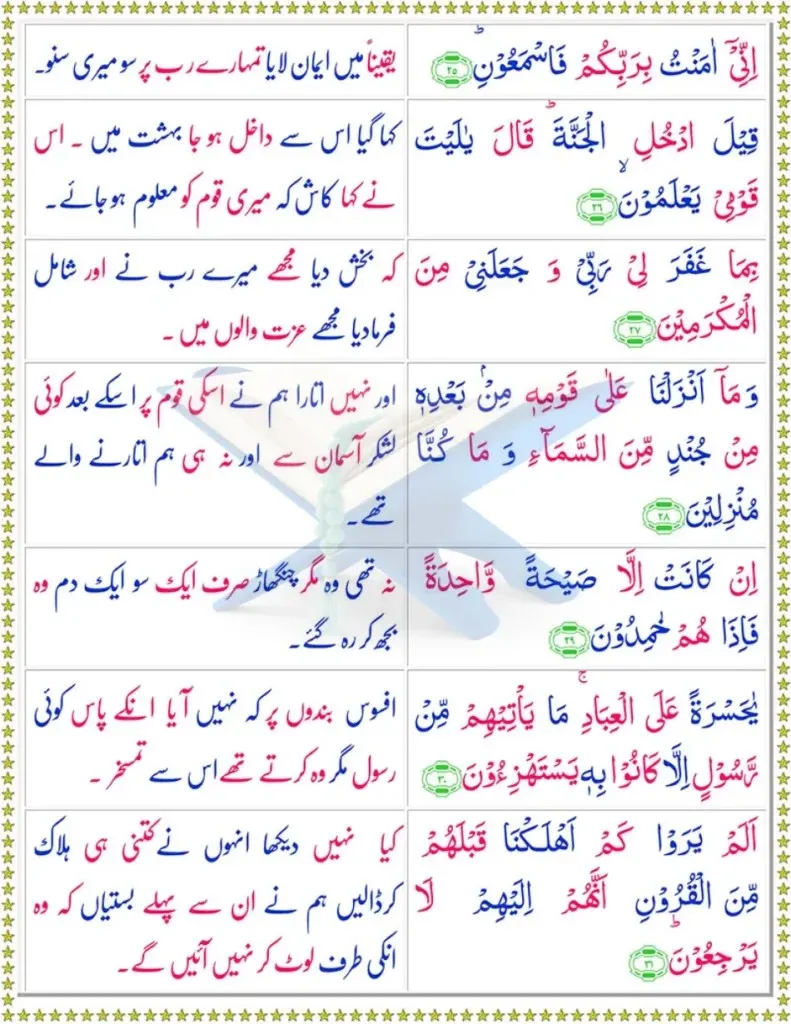 اِنِّيْۤ اٰمَنْتُ بِرَبِّكُمْ فَاسْمَعُوْنِ ؕ ﴿۲۵﴾
یقیناً میں ایمان لایا تمہارے رب پر سو میری سنو۔
قِيْلَ ادْخُلِ الْجَنَّةَ ؕ قَالَ يٰلَيْتَ
قَوْمِيْ يَعْلَمُوْنَ ۙ ﴿۲۶﴾
کہا گیا اس سے داخل ہو جا بہشت میں ۔ اس
نے کہا کاش کہ میری قوم کو معلوم ہو جائے۔
بِمَا غَفَرَ لِيْ رَبِّيْ وَ جَعَلَنِيْ مِنَ
الْمُكْرَمِيْنَ ﴿۲۷﴾
کہ بخش دیا مجھے میرے رب نے اور شامل
فرما دیا مجھے عزت والوں میں ۔
وَ مَاۤ اَنْزَلْنَا عَلٰى قَوْمِهٖ مِنْۢ بَعْدِهٖ
مِنْ جُنْدٍ مِّنَ السَّمَآءِ وَ مَا كُنَّا
مُنْزِلِيْنَ ﴿۲۸﴾
اور نہیں اتارا ہم نے اسکی قوم پر اسکے بعد کوئی
لشکر آسمان سے اور نہ ہی ہم اتارنے والے
تھے۔
اِنْ كَانَتْ اِلَّا صَيْحَةً وَّاحِدَةً
فَاِذَا هُمْ خٰمِدُوْنَ ﴿۲۹﴾
نہ تھی وہ مگر چنگھاڑ صرف ایک سو ایک دم وہ
بجھ کر رہ گئے۔
يٰحَسْرَةً عَلَى الْعِبَادِ ۚ مَا يَاْتِيْهِمْ مِّنْ
رَّسُوْلٍ اِلَّا كَانُوْا بِهٖ يَسْتَهْزِءُوْنَ ﴿۳۰﴾
افسوس بندوں پر کہ نہیں آیا انکے پاس کوئی
رسول مگر وہ کرتے تھے اس سے تمسخر ۔
اَلَمْ يَرَوْا كَمْ اَهْلَكْنَا قَبْلَهُمْ
مِّنَ الْقُرُوْنِ اَنَّهُمْ اِلَيْهِمْ لَا
يَرْجِعُوْنَ ؕ ﴿۳۱﴾
کیا نہیں دیکھا انہوں نے کتنی ہی ہلاک
کر ڈالیں ہم نے ان سے پہلے بستیاں کہ وہ
انکی طرف لوٹ کر نہیں آئیں گے۔